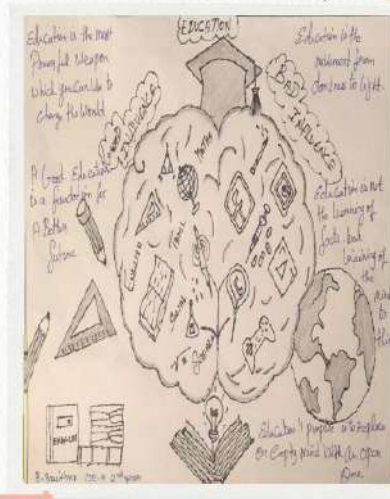 EDUCATION
Education is the most
Powerful Weapon
which you can use to
change the World
Education is the
movement from
darkness to light.
GOOD
INFLUENCE
BAD
INFLUENCE
A Good Education
is a foundation for
A Better
Future
Maths
English
Tamil
Social
Science
Education is not
the learning of
facts, but
training of
the
mind
to
thi
Education's purpose is to replace
an Empty Mind With An Open
One.
ENGLISH
2nd year